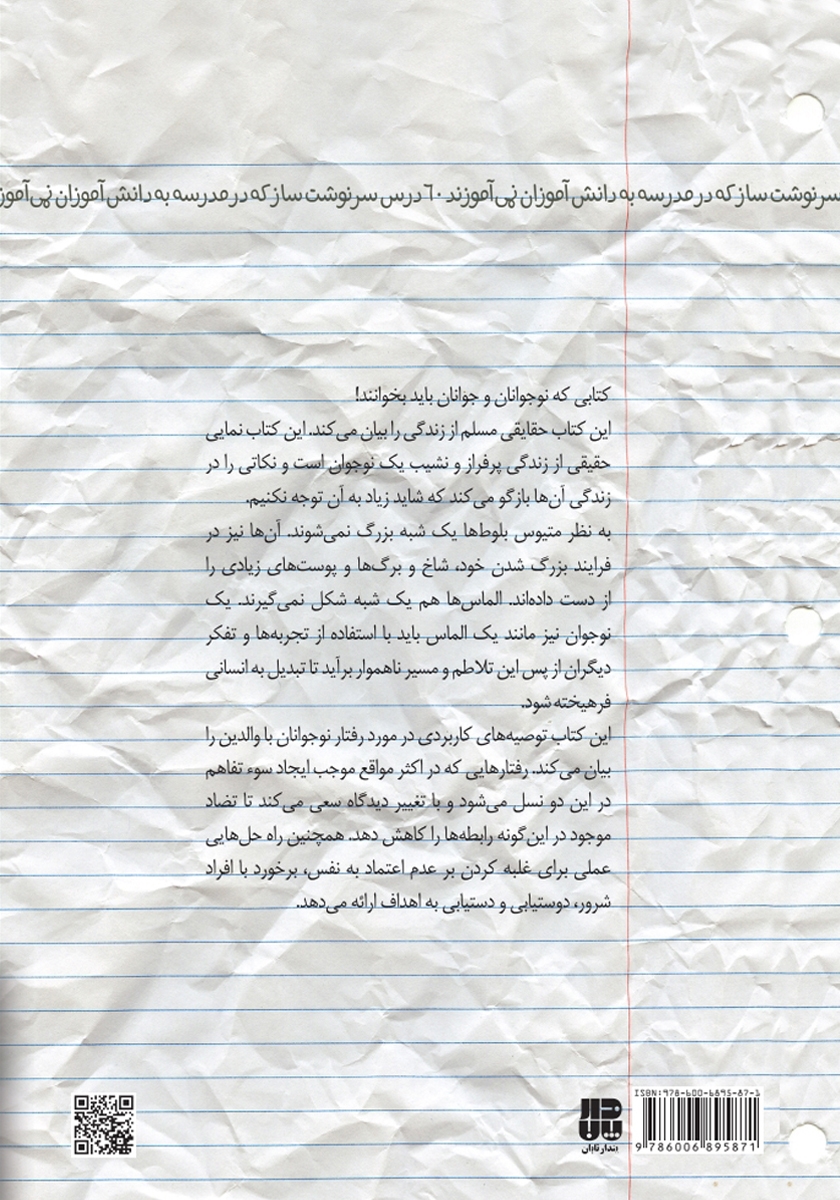 سرنوشت ساز که در مدرسه به دانش آموزان نمی‌آموزند ۶۰ درس سرنوشت ساز که در مدرسه به دانش آموزان نمی‌آموز
کتابی که نوجوانان و جوانان باید بخوانند!
این کتاب حقایقی مسلم از زندگی را بیان می‌کند. این کتاب نمایی
حقیقی از زندگی پرفراز و نشیب یک نوجوان است و نکاتی را در
زندگی آن‌ها بازگو می‌کند که شاید زیاد به آن توجه نکنیم.
به نظر متیوس بلوط‌ها یک شبه بزرگ نمی‌شوند. آن‌ها نیز در
فرایند بزرگ شدن خود، شاخ و برگ‌ها و پوست‌های زیادی را
از دست داده‌اند. الماس‌ها هم یک شبه شکل نمی‌گیرند. یک
نوجوان نیز مانند یک الماس باید با استفاده از تجربه‌ها و تفکر
دیگران از پس این تلاطم و مسیر ناهموار برآید تا تبدیل به انسانی
فرهیخته شود.
این کتاب توصیه‌های کاربردی در مورد رفتار نوجوانان با والدین را
بیان می‌کند. رفتارهایی که در اکثر مواقع موجب ایجاد سوء تفاهم
در این دو نسل می‌شود و با تغییر دیدگاه سعی می‌کند تا تضاد
موجود در این‌گونه رابطه‌ها را کاهش دهد. همچنین راه حل‌هایی
عملی برای غلبه کردن بر عدم اعتماد به نفس، برخورد با افراد
شرور، دوستیابی و دستیابی به اهداف ارائه می‌دهد.
ISBN: 978-600-6895-87-1
9 786006 895871
پندار تابان